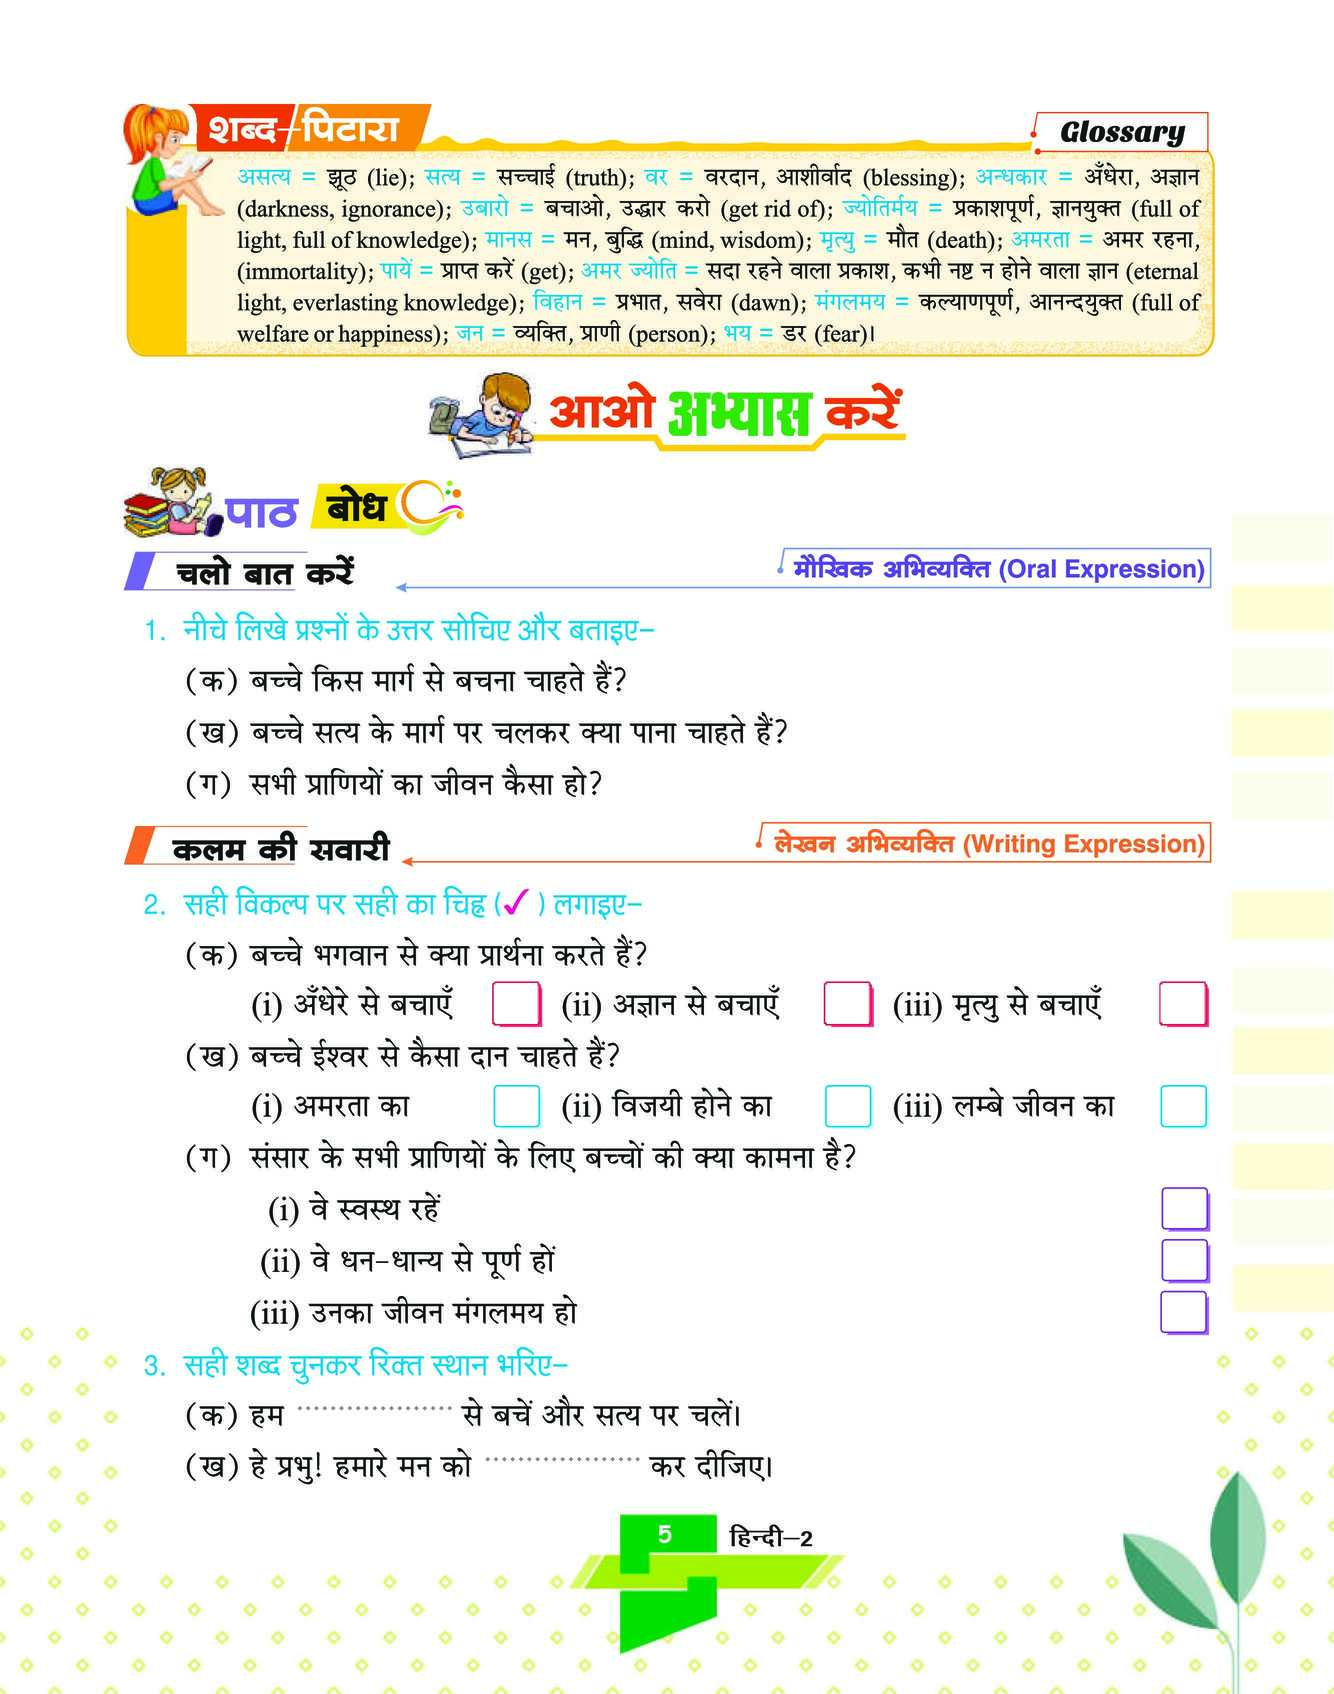 शब्द–पिटारा
Glossary
असत्य = झूठ (lie); सत्य = सच्चाई (truth); वर = वरदान, आशीर्वाद (blessing); अन्धकार = अँधेरा, अज्ञान
(darkness, ignorance); उबारो = बचाओ, उद्धार करो (get rid of); ज्योतिर्मय = प्रकाशपूर्ण, ज्ञानयुक्त (full of
light, full of knowledge); मानस = मन, बुद्धि (mind, wisdom); मृत्यु = मौत (death); अमरता = अमर रहना,
(immortality); पायें = प्राप्त करें (get); अमर ज्योति = सदा रहने वाला प्रकाश, कभी नष्ट न होने वाला ज्ञान (eternal
light, everlasting knowledge); विहान = प्रभात, सवेरा (dawn); मंगलमय = कल्याणपूर्ण, आनन्दयुक्त (full of
welfare or happiness); जन = व्यक्ति, प्राणी (person); भय = डर (fear)।
आओ अभ्यास करें
पाठ बोध
चलो बात करें
मौखिक अभिव्यक्ति (Oral Expression)
1. नीचे लिखे प्रश्नों के उत्तर सोचिए और बताइए–
(क) बच्चे किस मार्ग से बचना चाहते हैं?
(ख) बच्चे सत्य के मार्ग पर चलकर क्या पाना चाहते हैं?
(ग) सभी प्राणियों का जीवन कैसा हो?
कलम की सवारी
लेखन अभिव्यक्ति (Writing Expression)
2. सही विकल्प पर सही का चिह्न (✓) लगाइए–
(क) बच्चे भगवान से क्या प्रार्थना करते हैं?
(i) अँधेरे से बचाएँ (ii) अज्ञान से बचाएँ (iii) मृत्यु से बचाएँ
(ख) बच्चे ईश्वर से कैसा दान चाहते हैं?
(i) अमरता का (ii) विजयी होने का (iii) लम्बे जीवन का
(ग) संसार के सभी प्राणियों के लिए बच्चों की क्या कामना है?
(i) वे स्वस्थ रहें
(ii) वे धन-धान्य से पूर्ण हों
(iii) उनका जीवन मंगलमय हो
3. सही शब्द चुनकर रिक्त स्थान भरिए–
(क) हम ................... से बचें और सत्य पर चलें।
(ख) हे प्रभु! हमारे मन को ................... कर दीजिए।
5 हिन्दी–2